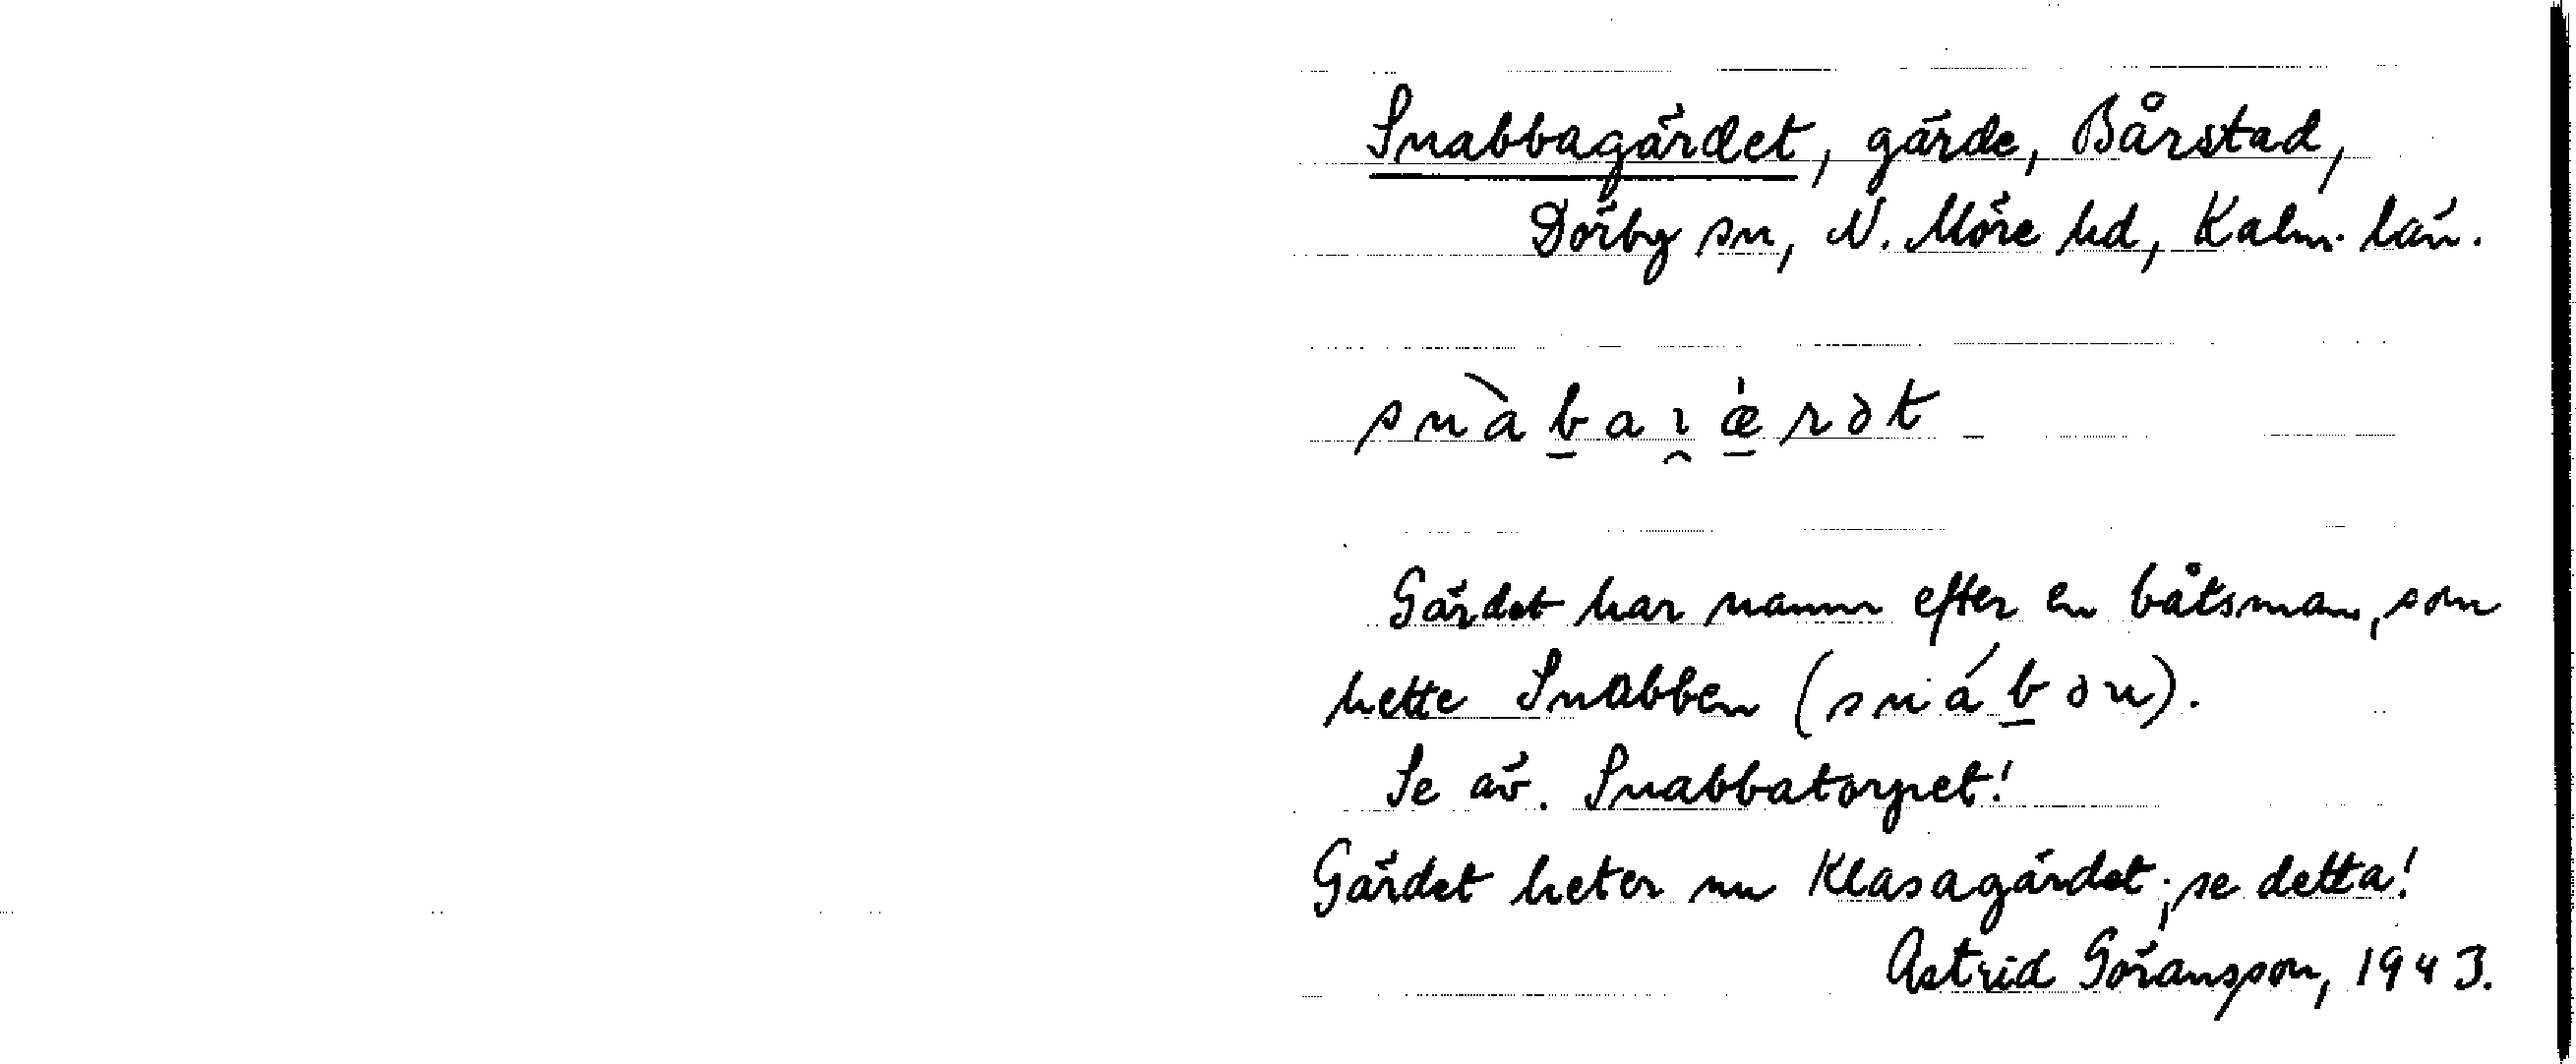 Snabbagärdet, gärde, Bårstad,
Dörby sn, N. Möre hd, Kalm. län.
snàbaı̯æ̀rət
Gärdet har namn efter en båtsman, som
hette Snabben (snábən).
Se äv. Snabbatorpet!
Gärdet heter nu Klasagärdet; se detta!
Astrid Göransson, 1943.